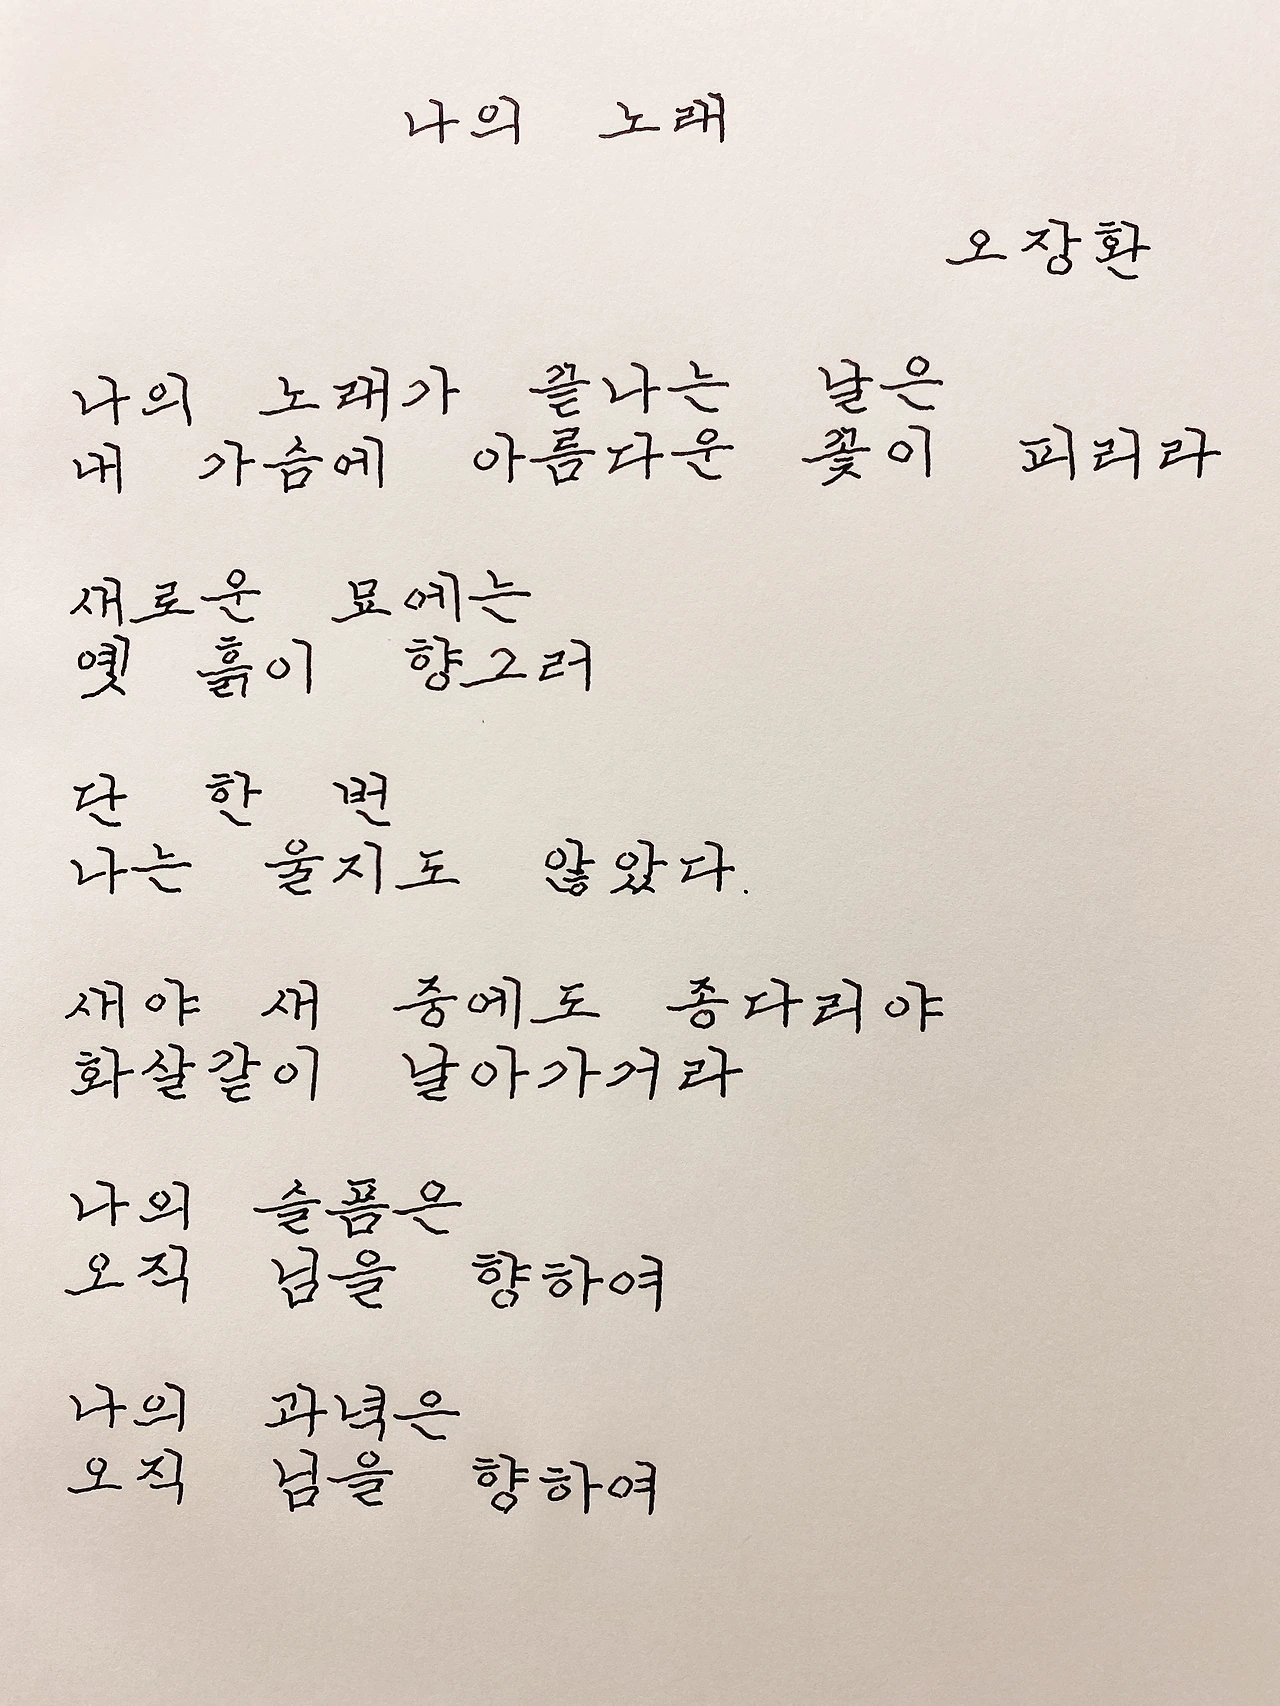 나의 노래
오장환
나의 노래가 끝나는 날은
내 가슴에 아름다운 꽃이 피리라
새로운 묘에는
옛 흙이 향그러
단 한 번
나는 울지도 않았다.
새야 새 중에도 종다리야
화살같이 날아가거라
나의 슬픔은
오직 님을 향하여
나의 과녁은
오직 님을 향하여